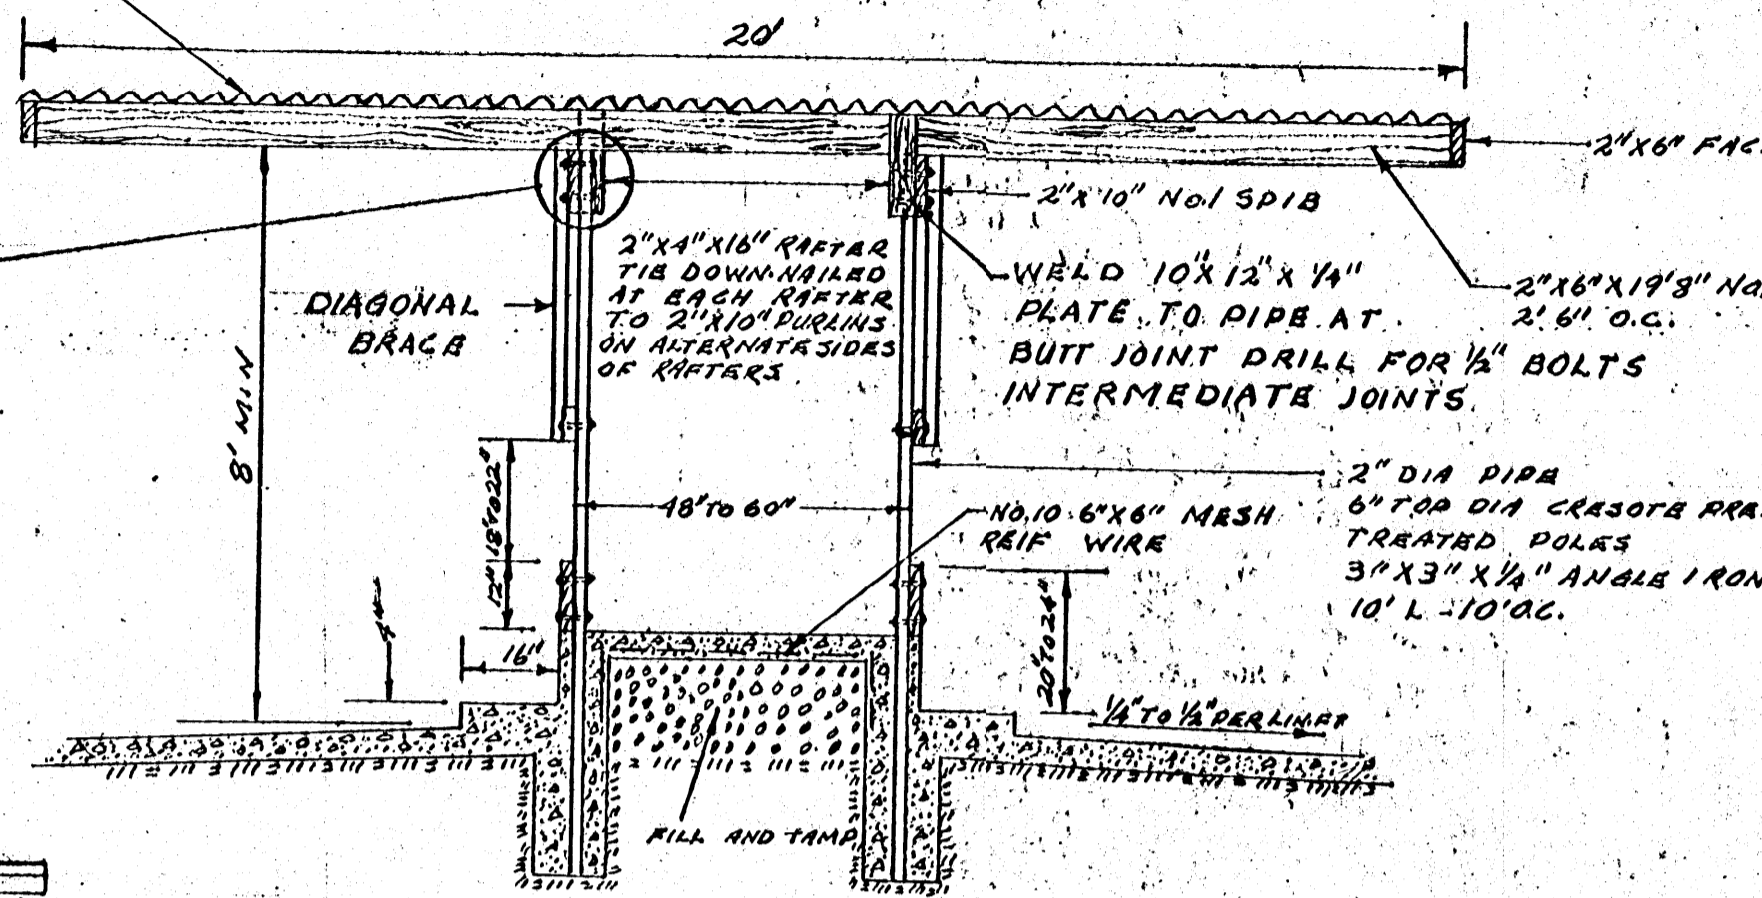 20'
2"X6" FAC
2"X10" NO.1 SPIB
2"X4"X16" RAFTER
TIE DOWN NAILED
AT EACH RAFTER
TO 2"X10" PURLINS
ON ALTERNATE SIDES
OF RAFTERS
DIAGONAL
BRACE
WELD 10"X 12"X 1/4"
PLATE TO PIPE AT
BUTT JOINT DRILL FOR 1/2" BOLTS
INTERMEDIATE JOINTS
2"X6"X19'8" NO.
2'6" O.C.
8' MIN
18"TO22"
12"
48" TO 60"
NO.10 6"X6" MESH
REIF WIRE
2" DIA PIPE
6" TOP DIA CRESOTE PRE
TREATED POLES
3"X3"X1/4" ANGLE IRON
10' L -10'O.C.
4"
16"
20"TO24"
1/4" TO 1/2" PER LIN.FT
FILL AND TAMP